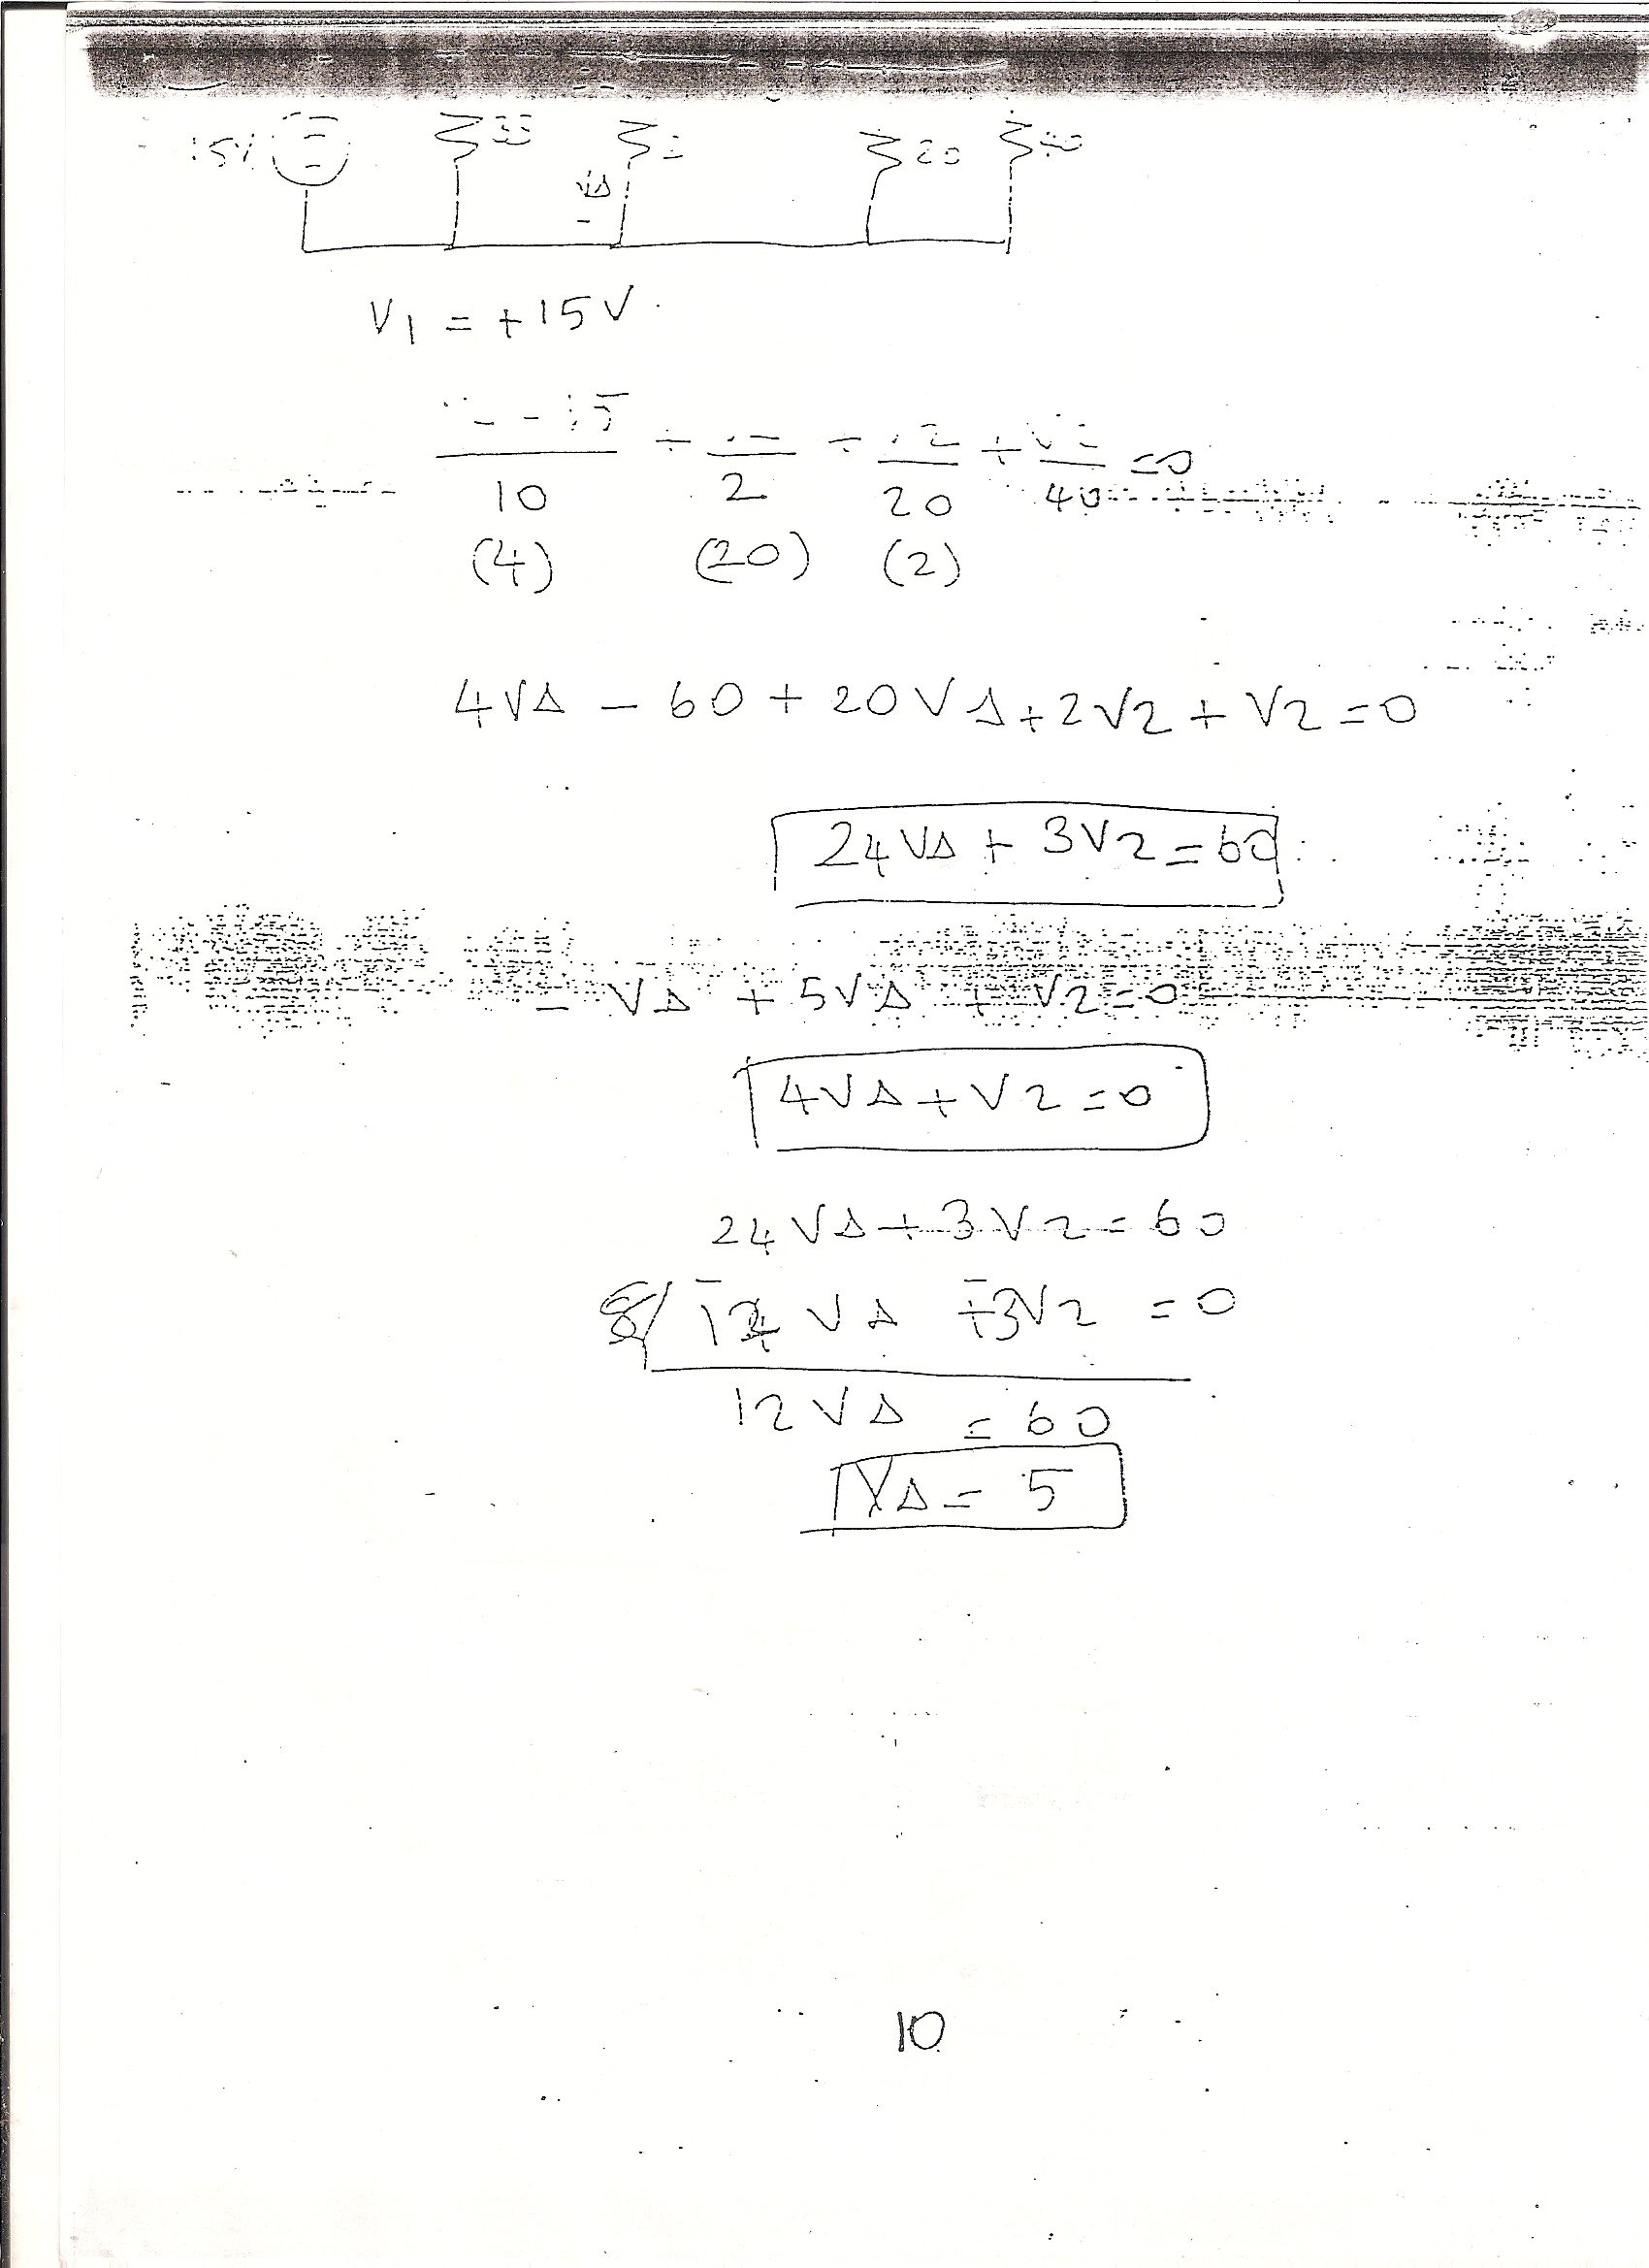 20
V1 = +15V
=0
10 2 20 40
(4) (20) (2)
4VΔ - 60 + 20VΔ + 2V2 + V2 = 0
24VΔ + 3V2 = 60
- VΔ + 5VΔ + V2 = 0
4VΔ + V2 = 0
24VΔ + 3V2 = 60
VΔ 3V2 = 0
12VΔ = 60
VΔ = 5
10